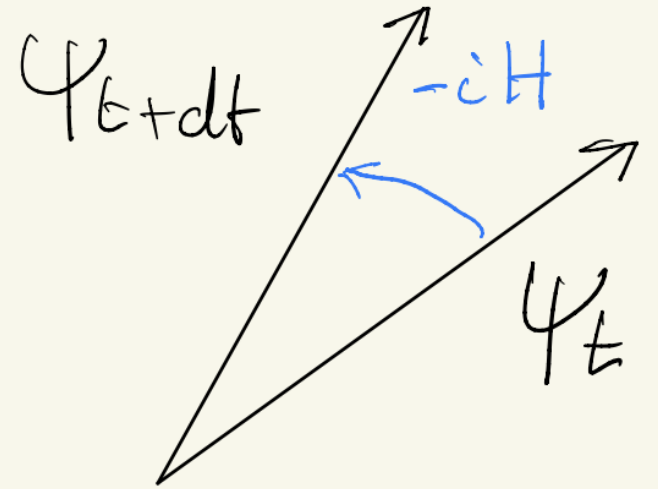 ψt+dt
-iH
ψt